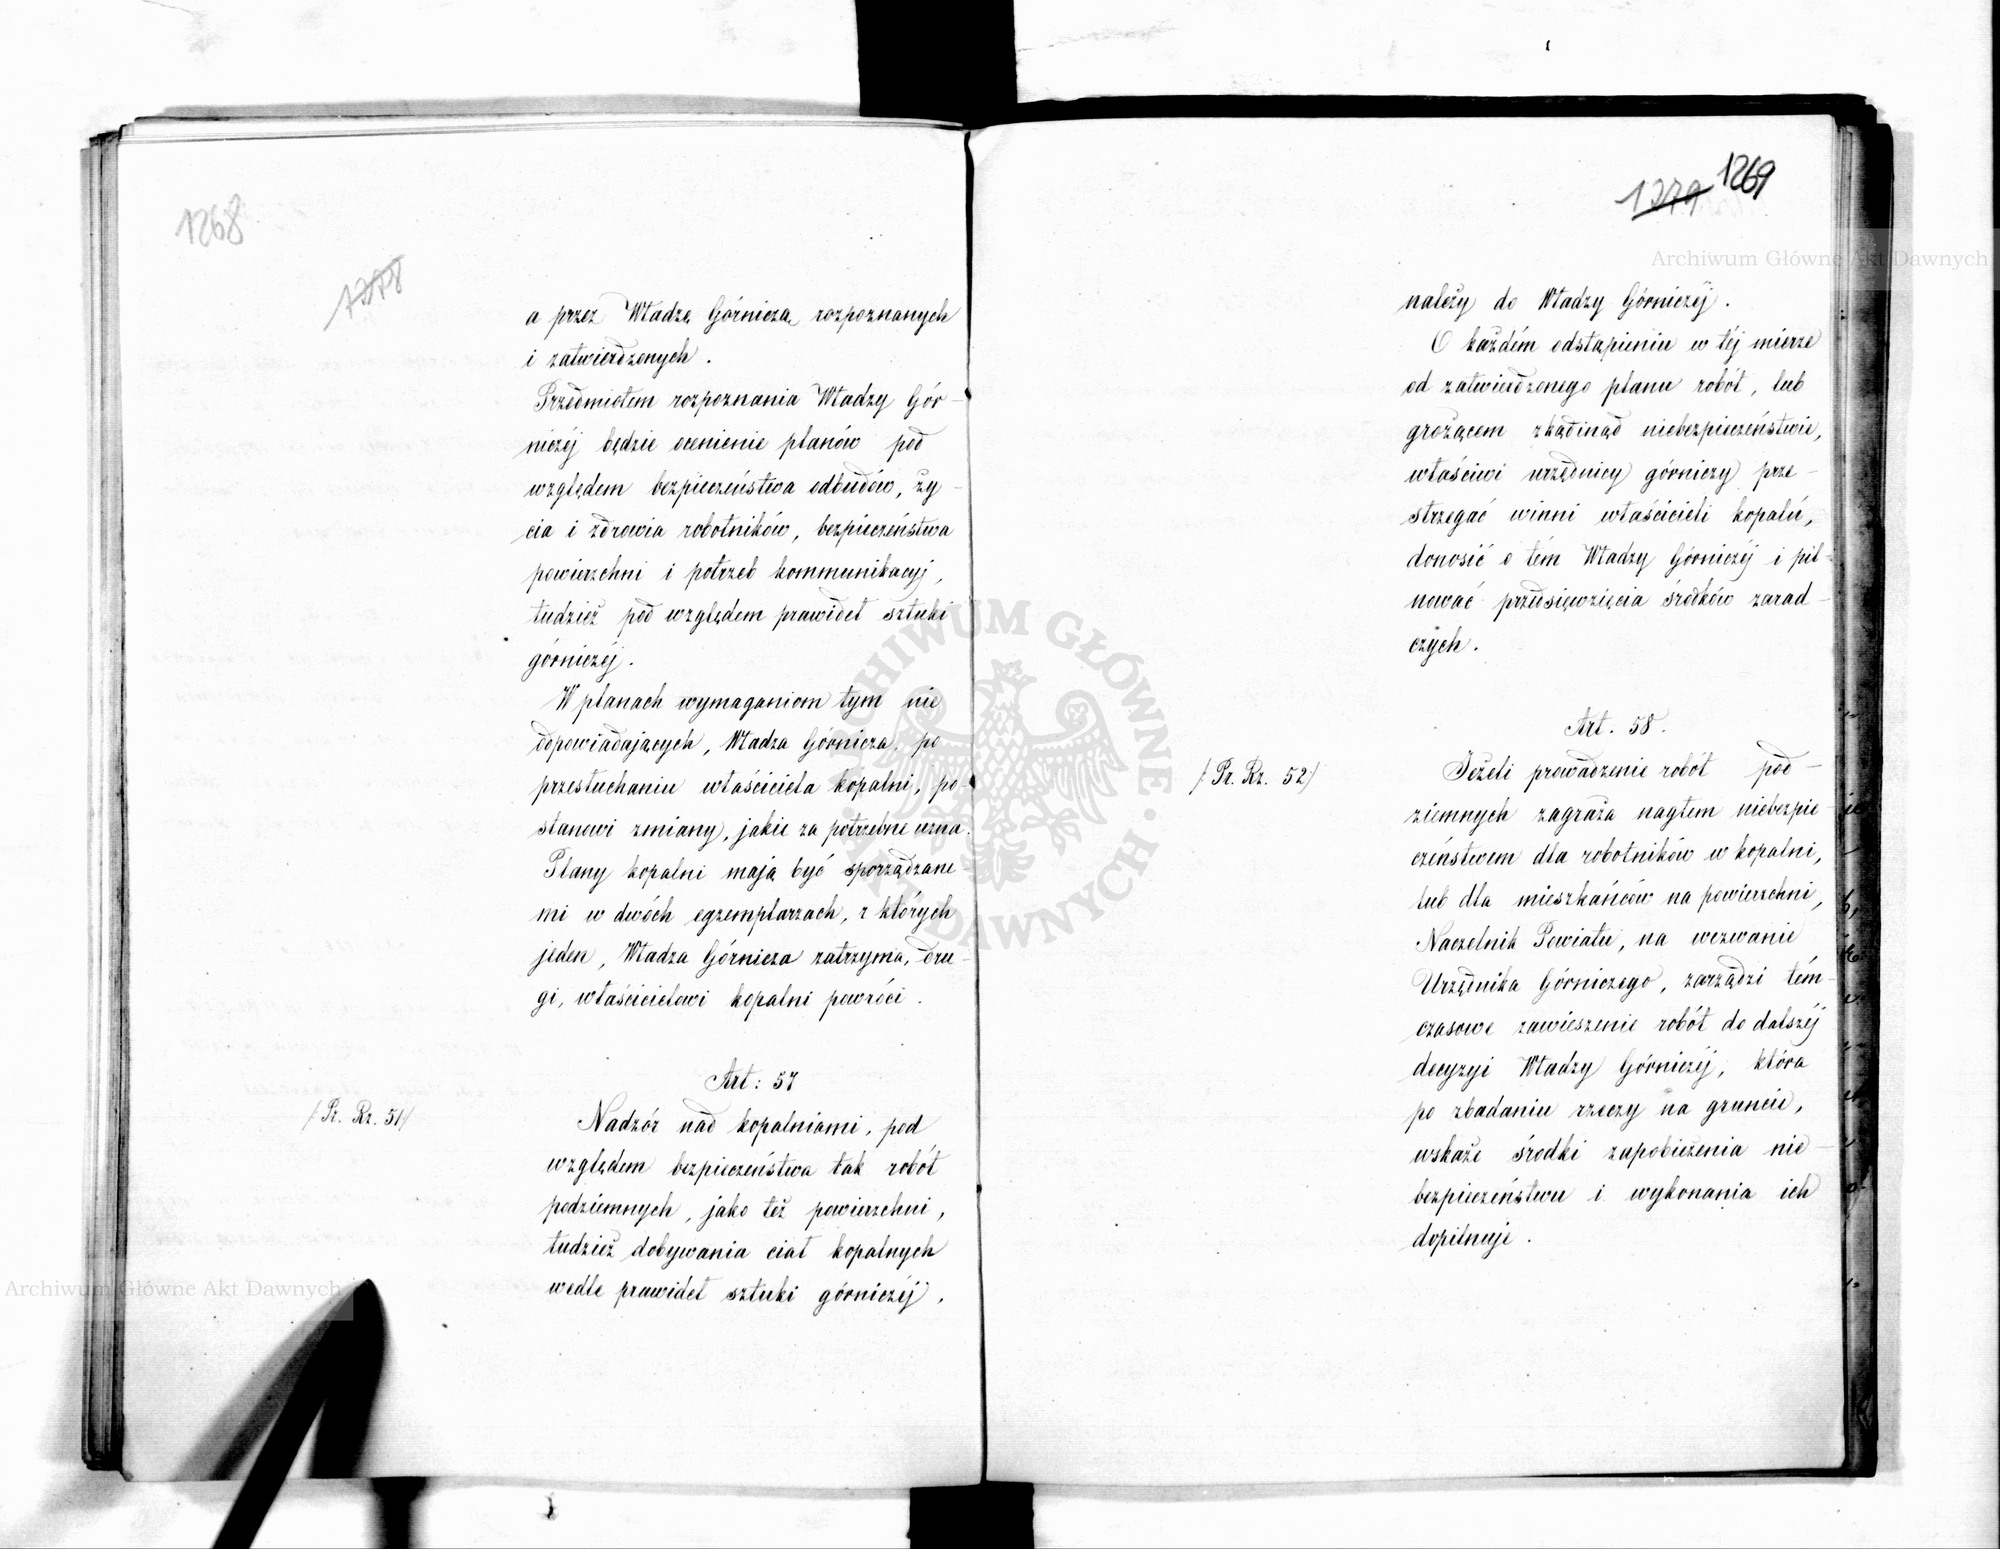 1268
1278
a przez Władzę Górniczą rozpoznanych
i zatwierdzonych.
Przedmiotem rozpoznania Władzy Gór-
niczéj będzie ocenienie planów pod
względem bezpieczeństwa odbudów, ży-
cia i zdrowia robotników, bezpieczeństwa
powierzchni i potrzeb kommunikacyj,
tudzież pod względem prawideł sztuki
górniczéj.
W planach wymaganiom tym nie
odpowiadających, Władza Górnicza, po
przesłuchaniu właściciela kopalni, po-
stanowi zmiany, jakie za potrzebne uzna.
Plany kopalni mają być sporządzane
mi w dwóch egzemplarzach, z których
jeden, Władza Górnicza zatrzyma, dru-
gi, właścicielowi kopalni powróci.
Art: 57
/: Pr. Rz. 51/
Nadzór nad kopalniami, pod
względem bezpieczeństwa tak robót
podziemnych, jako też powierzchni,
tudzież dobywania ciał kopalnych
wedle prawideł sztuki górniczéj,
1279 1269
należy do Władzy Górniczéj.
O każdém odstąpieniu w téj mierze
od zatwierdzonego planu robót, lub
grożącem zkądinąd niebezpieczeństwie,
właściwi urzędnicy górniczy prze-
strzegać winni właścicieli kopalń,
donosić o tém Władzy Górniczéj i pil-
nować przedsięwzięcia środków zarad-
czych.
Art. 58.
/: Pr. Rz. 52/
Jeżeli prowadzenie robót pod-
ziemnych zagraża nagłem niebezpie-
czeństwem dla robotników w kopalni,
lub dla mieszkańców na powierzchni,
Naczelnik Powiatu, na wezwanie
Urzędnika Górniczego, zarządzi tém-
czasowe zawieszenie robót do dalszéj
decyzyi Władzy Górniczéj, która
po zbadaniu rzeczy na gruncie,
wskaże środki zapobieżenia nie-
bezpieczeństwu i wykonania ich
dopilnuje.
Archiwum Główne Akt Dawnych
Archiwum Główne Akt Dawnych
ARCHIWUM GŁÓWNE AKT DAWNYCH